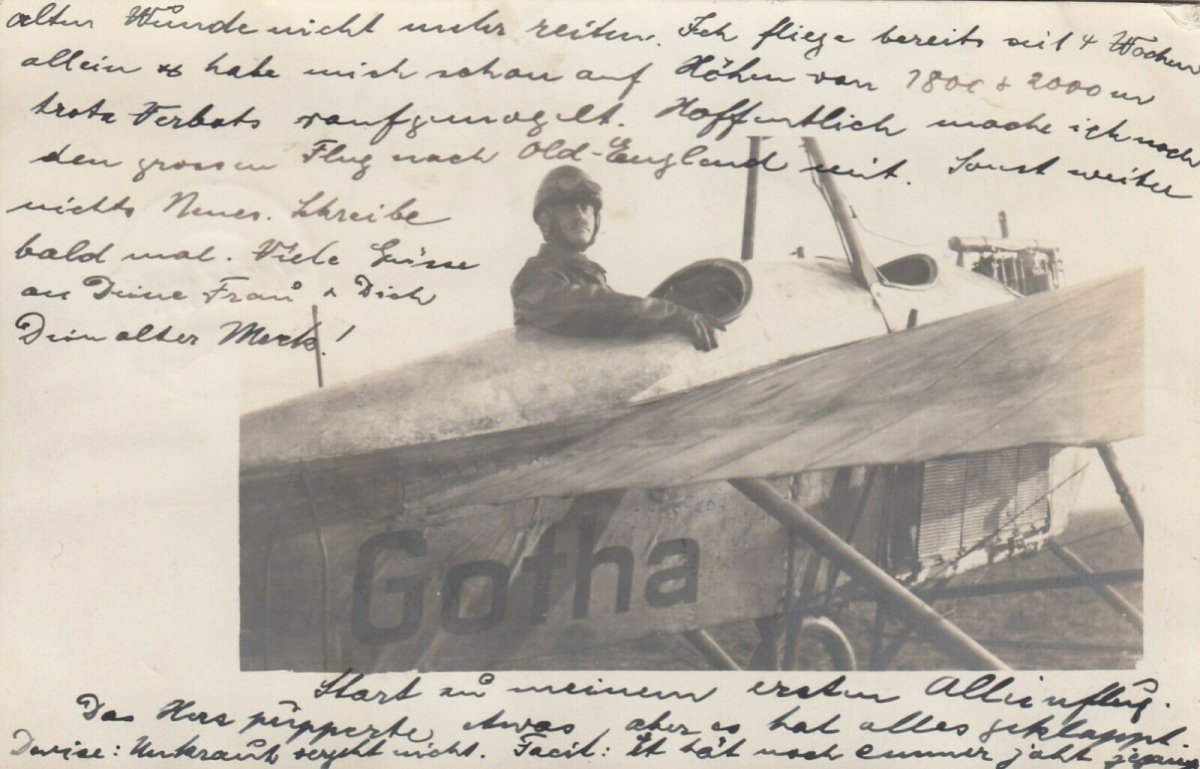 alten Wunde nicht mehr reiten. Ich fliege bereits seit 4 Wochen
allein & habe mich schon auf Höhen von 1800 & 2000 m
trotz Verbots raufgemogelt. Hoffentlich mache ich noch
den grossen Flug nach Old-England mit. Sonst weiter
nichts Neues. Schreibe
bald mal. Viele Grüsse
an Deine Frau & Dich
Dein alter Merk!
Gotha
Start zu meinem ersten Alleinflug.
Das Herz pupperte etwas, aber es hat alles geklappt.
Devise: Unkraut vergeht nicht. Facit: Et hät noch emmer joht